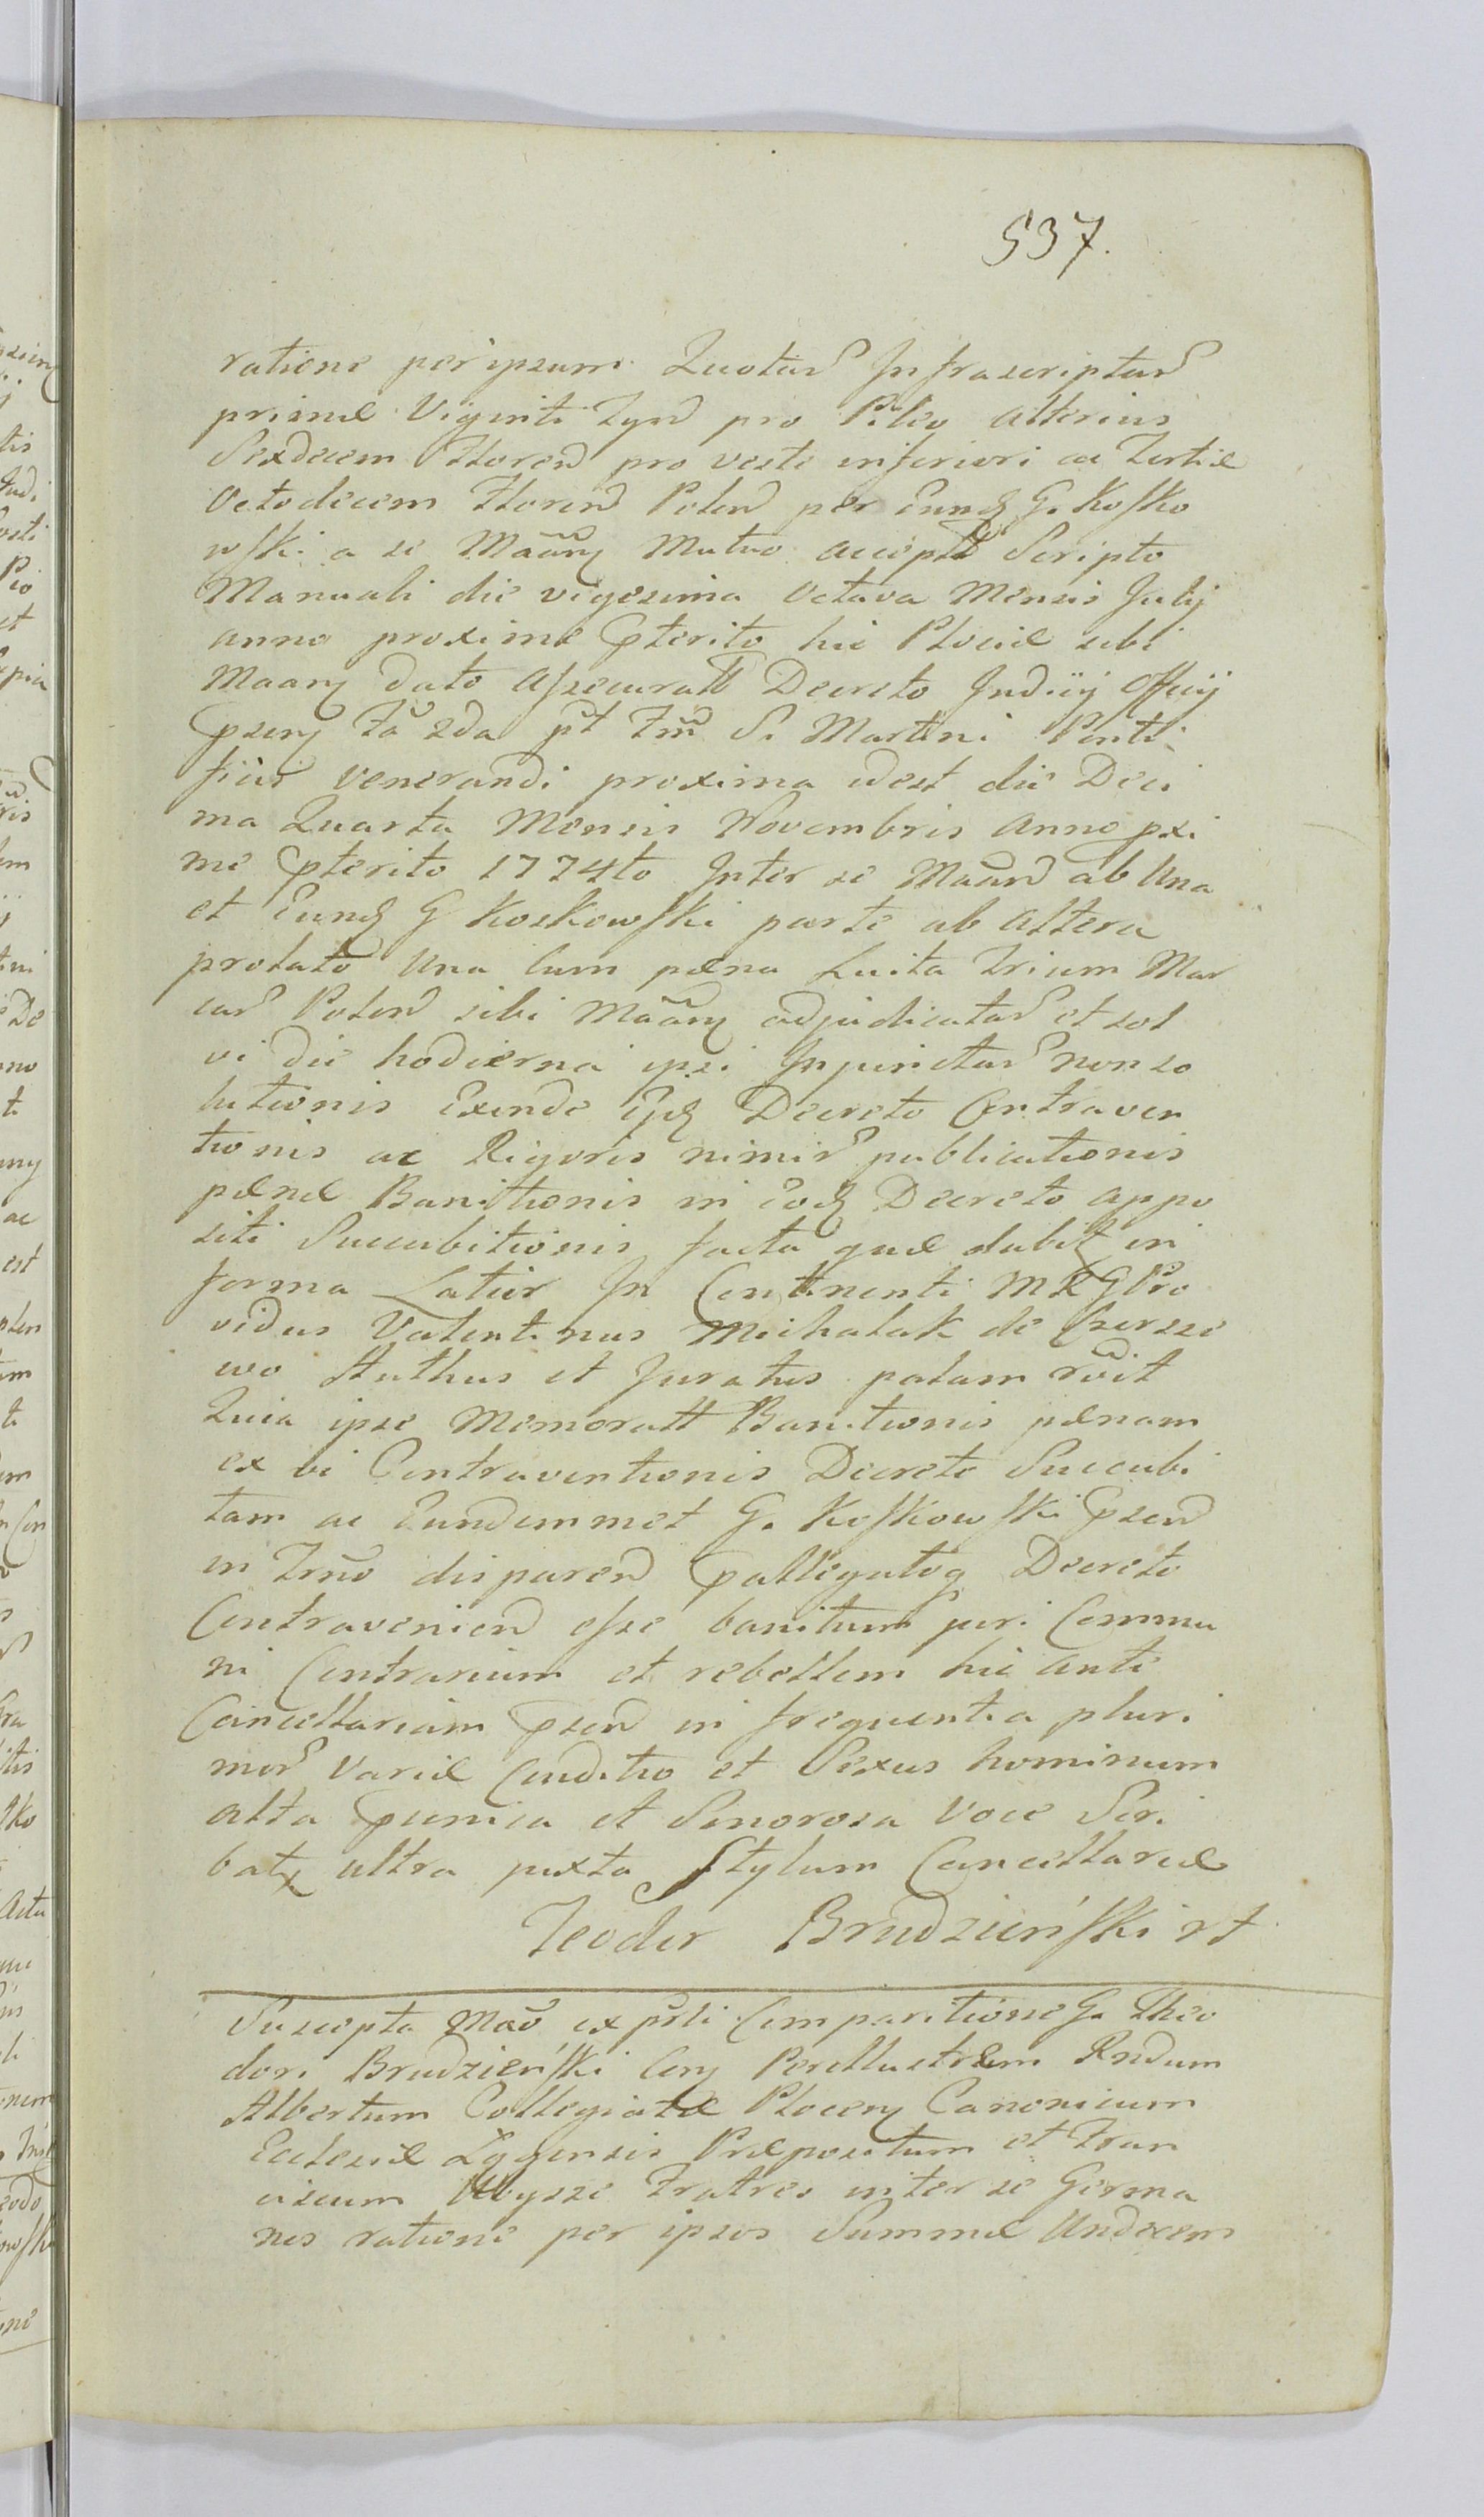 537.
ratione per ipsum Quotar Infrascriptar
primæ Viginti Tynf pro Pileo alterius
Sexdecem Floren pro veste inferiori ac Tertiæ
Octodecem Floren Polon per Eund G. Kosko
wski a se Maãry Mutuo accept Scripto
Manuali die vigesima Octava Mensis Julij
anno proxime Pterito hic Plociæ sibi
Maary dato Assecuratt Decreto Judiij Officij
Pseny Fã 2da pt Fm S. Martini Ponti
ficis Venerandi proxima idest die Deci
ma Quarta Mensis Novembris Anno pxi
me Pterito 1774to Inter se Maãr ab Una
et Eund G Koskowski parte ab altera
prolato Una Cum pæna Luita Trium Mar
car Polon sibi Maãry adjudicatar et sol
vi die hodierna ipsi Injunctar non so
lutionis Exinde Ejd Decreto Contraven
tionis ac Rigoris nimir publicationis
pænæ Banitionis in Eod Decreto appo
siti Succubitionis facta quæ dabit in
forma Latior In Continenti M R G Pro
vidus Valentinus Michalak de
wo Authus et Juratus palam rõit
Quia ipse Memoratt Banitionis pænam
ex vi Contraventionis Decreto Succubi
tam ac Eundemmet G. Koskowski Psen
in Trnõ disparen Pallegatoq Decreto
Contravenien esse banitum juri Commu
ni Contrarium et rebellem hic ante
Cancellariam Psen in frequentia pluri
mor Variæ Conditio et Sexus hominum
alta Pcunica et Sonorosa Voce Scri
batz ultra juxta Stylum Cancellariæ
Teodor Brudzieński rt
Suscepta Maõ ex psti Comparitione G. Theo
dori Brudzieński Cony Perillustrem Rndum
Albertum Collegiatæ Ploceny Canonicum
Ecclesiæ Præpositum et Fran
ciscum Fratres inter se Germa
nos ratione per ipsos Summæ Undecem